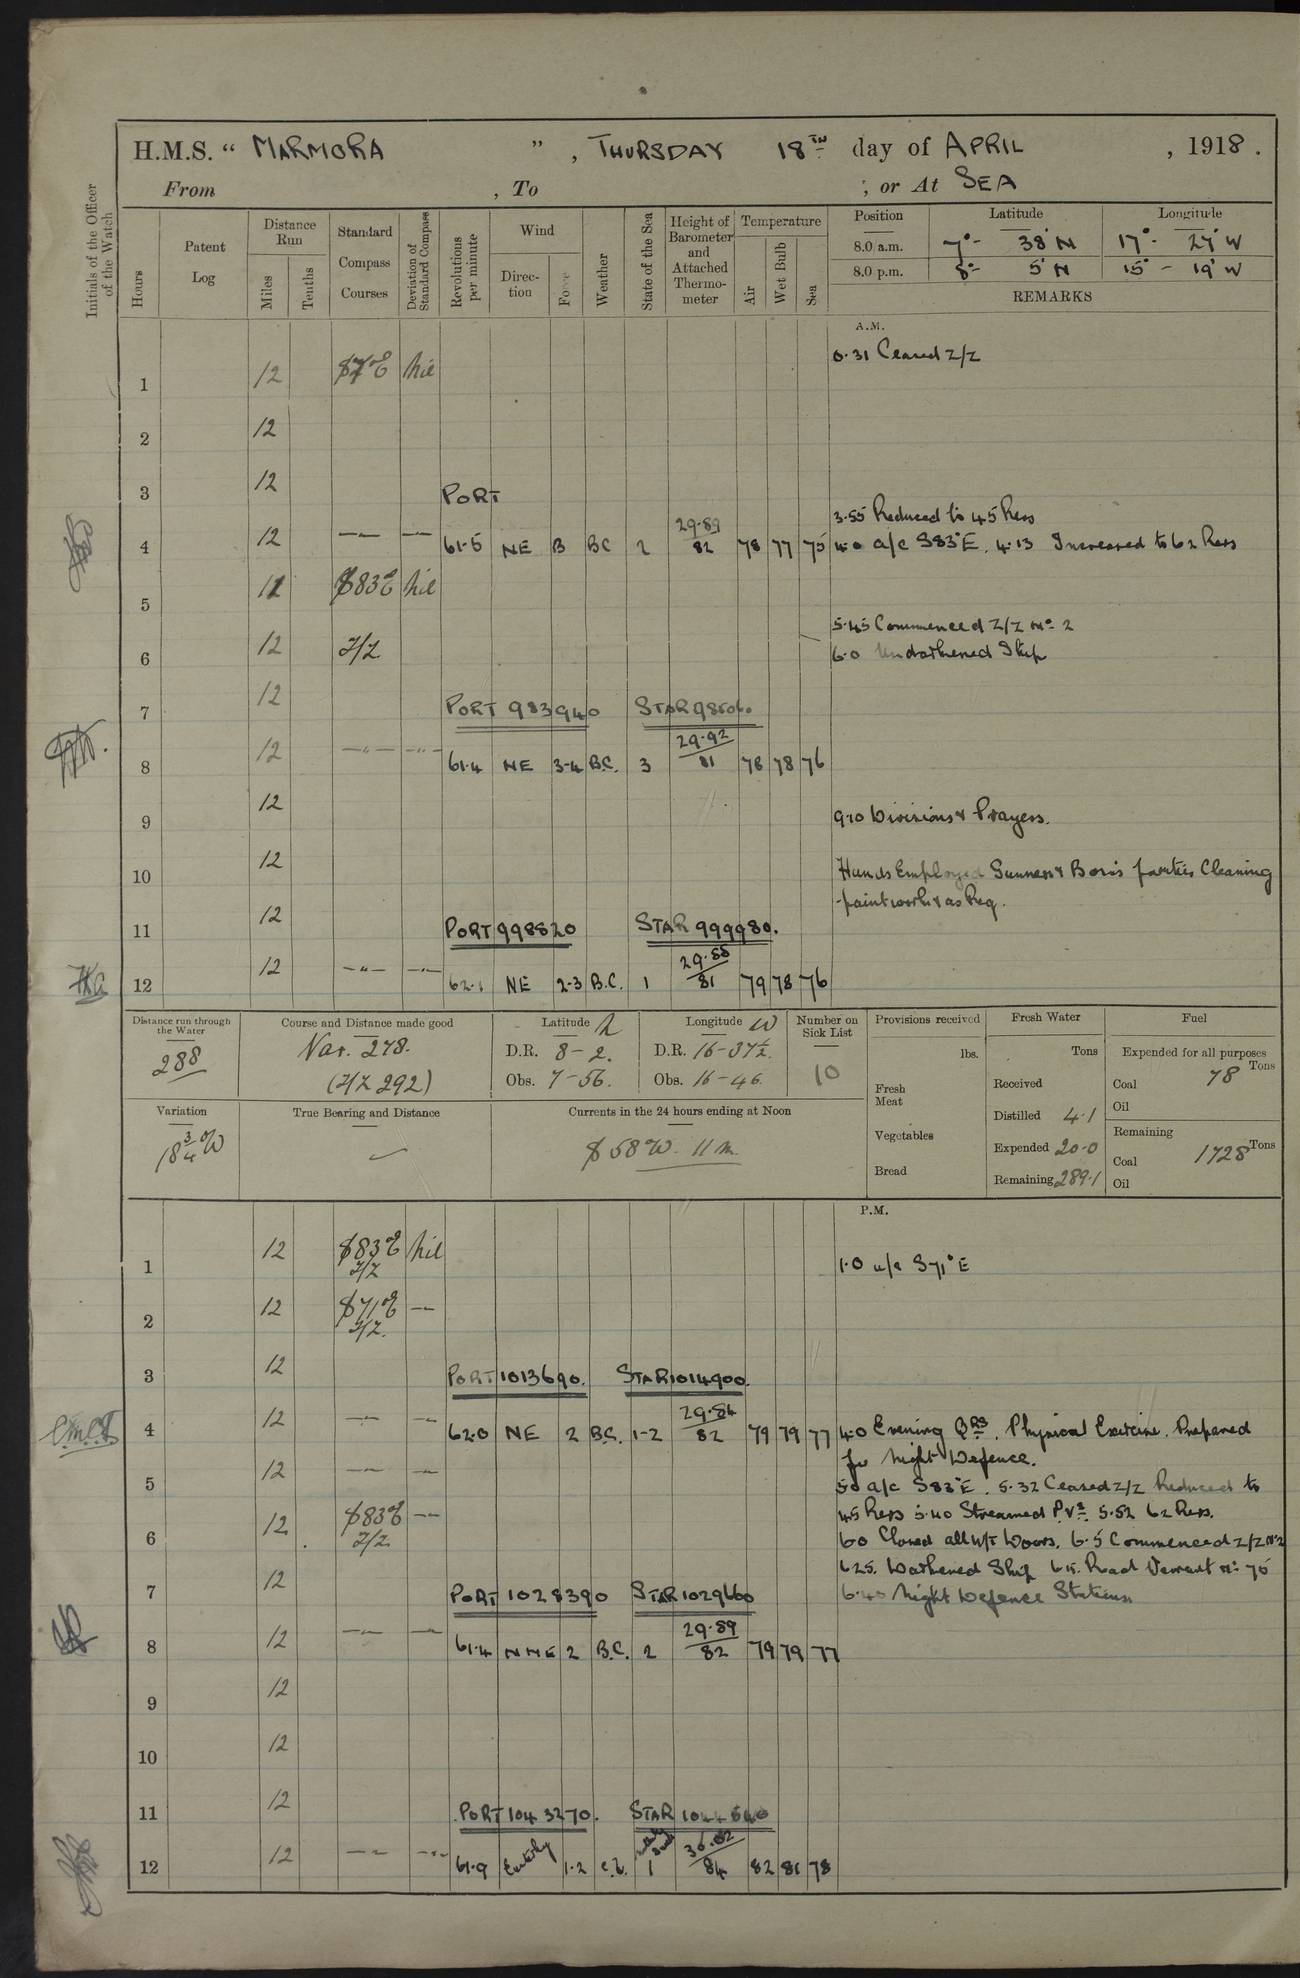 H.M.S. “ MARMORA ” , THURSDAY 18TH day of APRIL , 1918 .
From , To ; or At SEA
Initials of the Officer of the Watch
Hours
Patent Log
Distance Run
Miles
Tenths
Standard Compass Courses
Deviation of Standard Compass
Revolutions per minute
Wind
Direction
Force
Weather
State of the Sea
Height of Barometer and Attached Thermometer
Temperature
Air
Wet Bulb
Sea
Position Latitude Longitude
8.0 a.m. 7° - 38' N 17° - 27' W
8.0 p.m. 8° - 5' N 15° - 19' W
REMARKS
A.M.
0.31 Ceased Z/Z
1 12 nil
2 12
3 12 PORT
3.55 Reduced to 45 Revs
4 12 61.5 NE 3 BC 2 29.89 82 78 77 75 4.0 a/c S83°E. 4.13 Increased to 62 Revs
5 12 S83°E nil
5.45 Commenced Z/Z No 2
6 12 Z/Z 6.0 Undarkened Ship
7 12 PORT 983940 STAR
8 12 61.4 NE 3-4 B.C. 3 29.92 81 78 78 76
9 12 9.10 Divisions & Prayers.
10 12 Hands Employed Gunners & Bosns parties Cleaning
paintwork & as Req.
11 12 PORT 998820 STAR 999980.
12 12 62.1 NE 2-3 B.C. 1 29.88 81 79 78 76
Distance run through the Water
288
Course and Distance made good
Var. 278.
(Z/Z 292)
Latitude N
D.R. 8-2.
Obs. 7-56.
Longitude W
D.R. 16-37½
Obs. 16-46.
Number on Sick List
10
Provisions received
lbs.
Fresh Meat
Vegetables
Bread
Fresh Water
Tons
Received
Distilled 4.1
Expended 20.0
Remaining 289.1
Fuel
Expended for all purposes
Coal 78 Tons
Oil
Remaining
Coal 1728 Tons
Oil
Variation
18¾°W
True Bearing and Distance
Currents in the 24 hours ending at Noon
S 58 W. 11 m.
P.M.
1 12 S83°E Z/Z nil 1.0 a/c S71°E
2 12 S71°E Z/Z.
3 12 PORT 1013690. STAR 1014900.
4 12 62.0 NE 2 B.C. 1-2 29.84 82 79 79 77 4.0 Evening QRS. Physical Exercise. Prepared
for Night Defence.
5 12 5.0 a/c S83°E. 5.32 Ceased Z/Z Reduced to
45 Revs 5.40 Streamed P.V.s. 5.52 62 Revs.
6 12 S83°E Z/Z 6.0 Closed all W/T Doors. 6.5 Commenced Z/Z No 2
6.25. Darkened Ship 6.15. Read Warrant No 75
7 12 PORT 1028390 STAR 1029660 6.40 Night Defence Stations
8 12 61.4 NNE 2 B.C. 2 29.89 82 79 79 77
9 12
10 12
11 12 PORT 1043270. STAR
12 12 61.9 Easterly 1-2 1 84 82 81 78